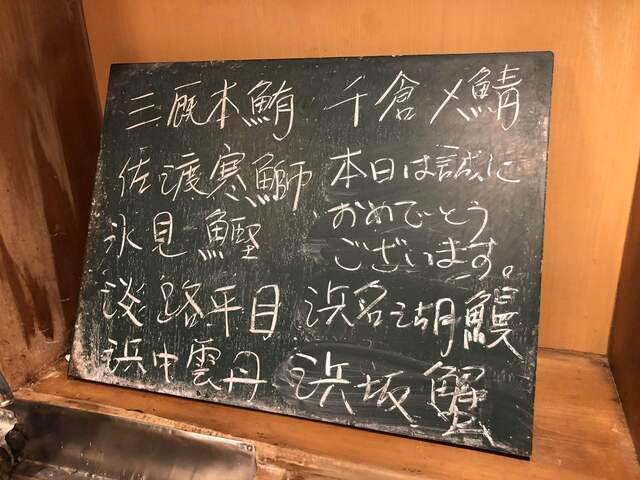 三厩本鮪
佐渡寒鰤
氷見鰹
淡路平目
浜中雲丹
千倉〆鯖
本日は誠に
おめでとう
ございます。
浜名湖鰻
浜坂蟹